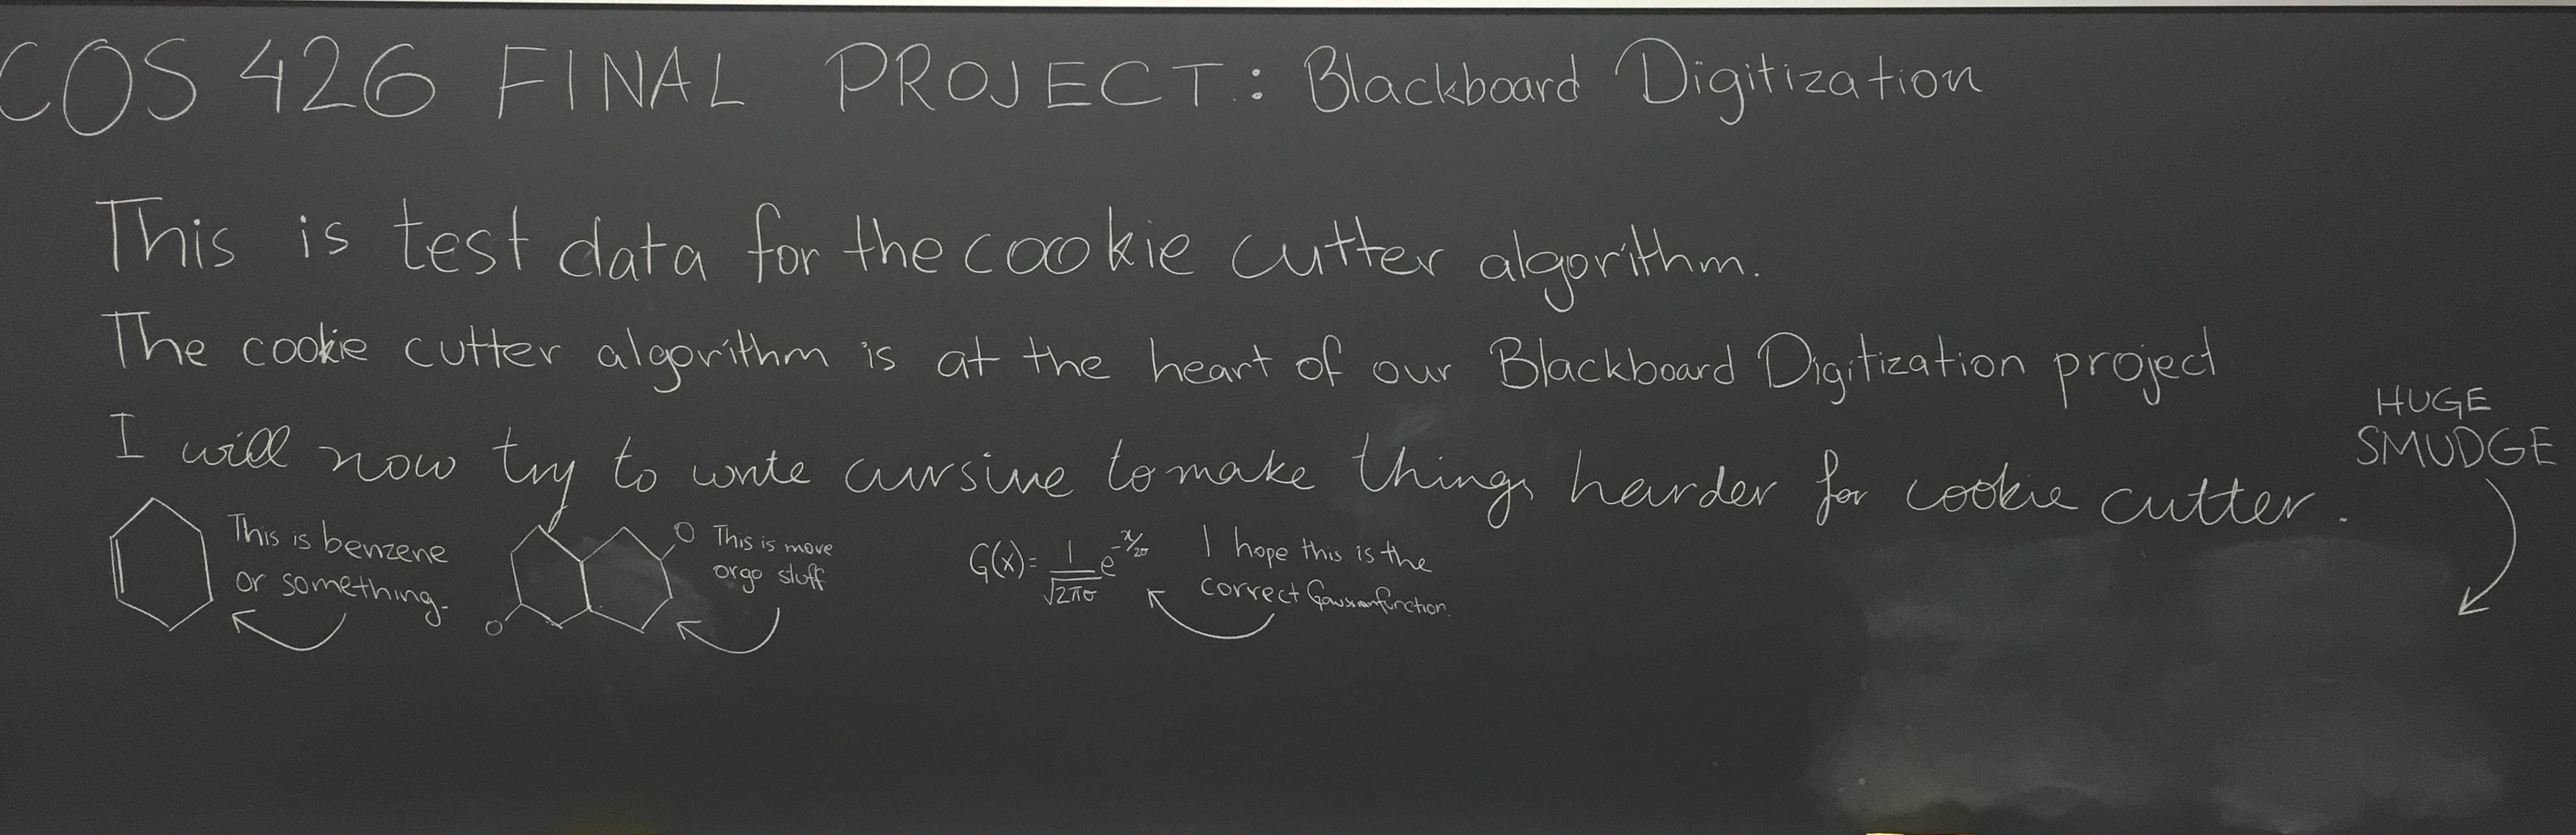 COS 426 FINAL PROJECT: Blackboard Digitization
This is test data for the cookie cutter algorithm.
The cookie cutter algorithm is at the heart of our Blackboard Digitization project
I will now try to write cursive to make things harder for cookie cutter.
HUGE
SMUDGE
This is benzene
or something.
O
O
This is more
orgo stuff
G(x)= 1/√2πσ e^-x/2σ
I hope this is the
correct Gaussian function.